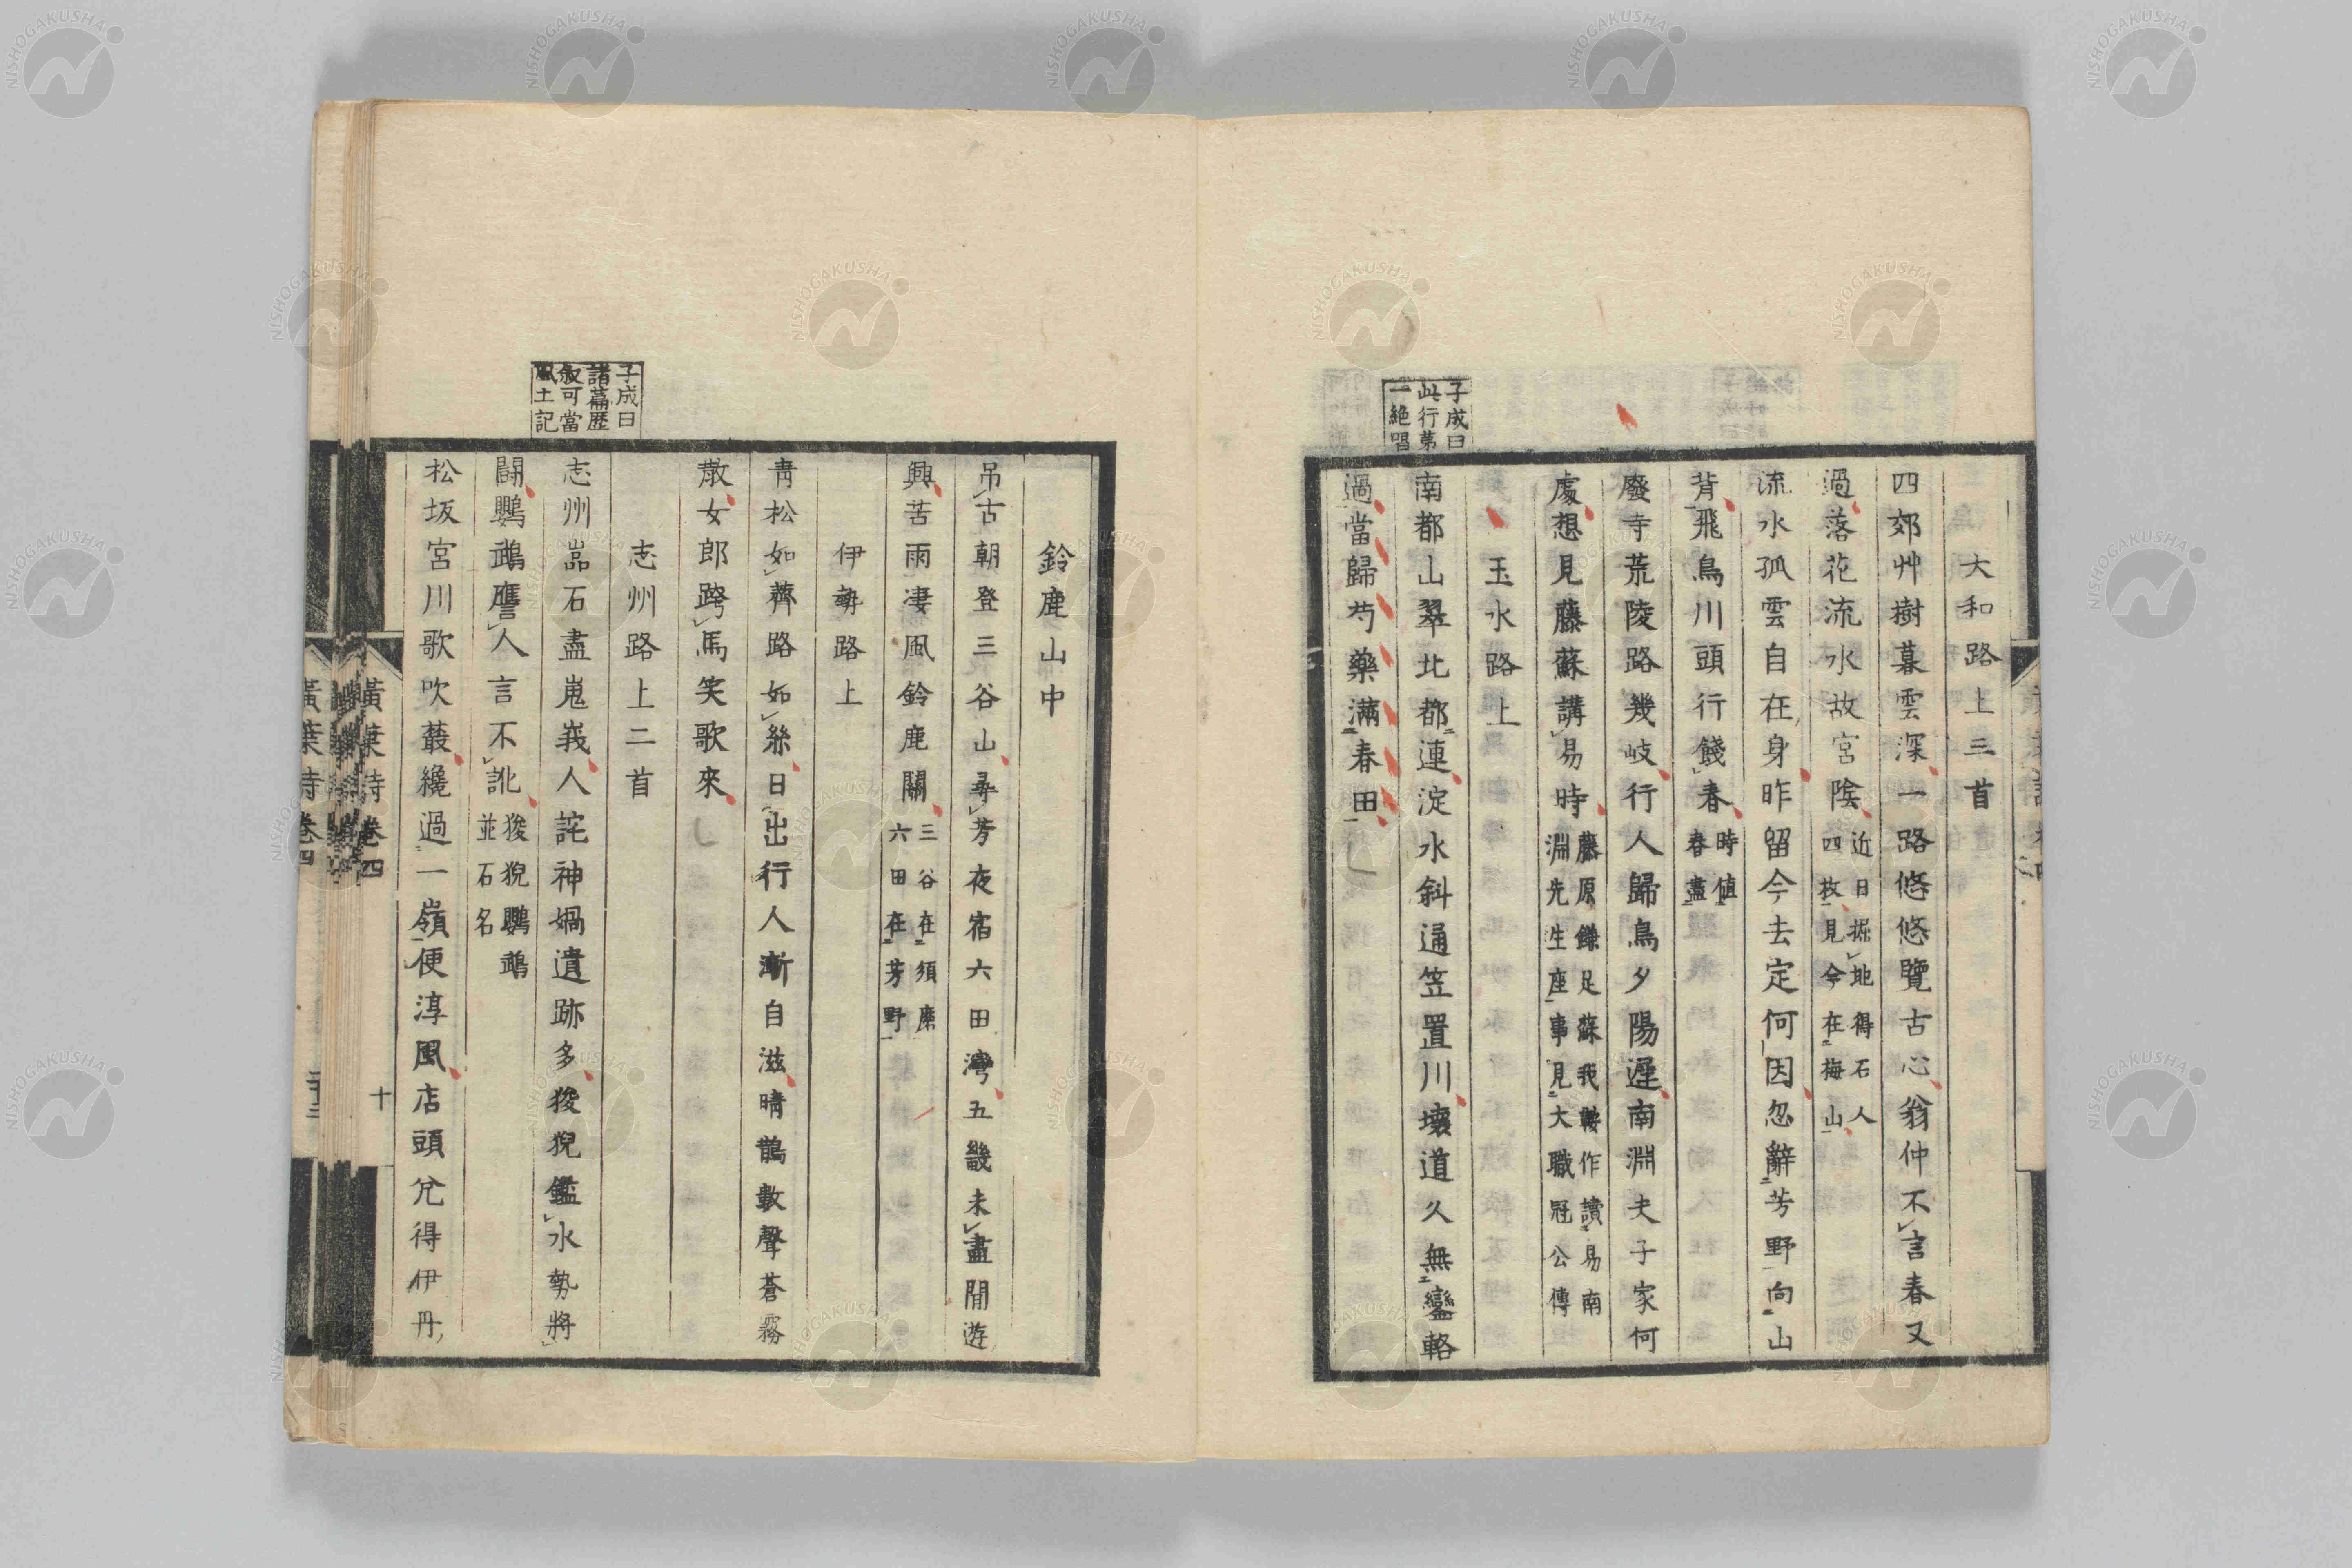 大和路上三首
四郊艸樹暮雲深一路悠悠覽古心翁仲不言春又
過落花流水故宮陰
近日掘地得石人
四枚見今在梅山
流水孤雲自在身昨留今去定何因忽辭芳野向山
背飛鳥川頭行餞春
時値
春盡
廢寺荒陵路幾岐行人歸鳥夕陽遲南淵夫子家何
處想見藤蘇講易時
藤原鎌足蘇我鞍作讀易南
淵先生座事見大職冠公傳
玉水路上
子成曰
此行第
一絶唱
南都山翠北都連淀水斜通笠置川壞道久無鑾輅
過當歸芍藥滿春田
鈴鹿山中
吊古朝登三谷山尋芳夜宿六田灣五畿未盡閒遊
興苦雨凄風鈴鹿關
三谷在須磨
六田在芳野
伊勢路上
青松如薺路如絲日出行人漸自滋晴鵲數聲蒼霧
散女郎跨馬笑歌來
志州路上二首
子成曰
諸篇歴
叙可當
風土記
志州嵓石盡嵬峩人詫神媧遺跡多狻猊鑑水勢將
鬪鸚鵡譍人言不訛
狻猊鸚鵡
並石名
松坂宮川歌吹叢纔過一嶺便淳風店頭兊得伊丹
黃葉詩 卷四
十
黃葉詩 卷四
NISHOGAKUSHA